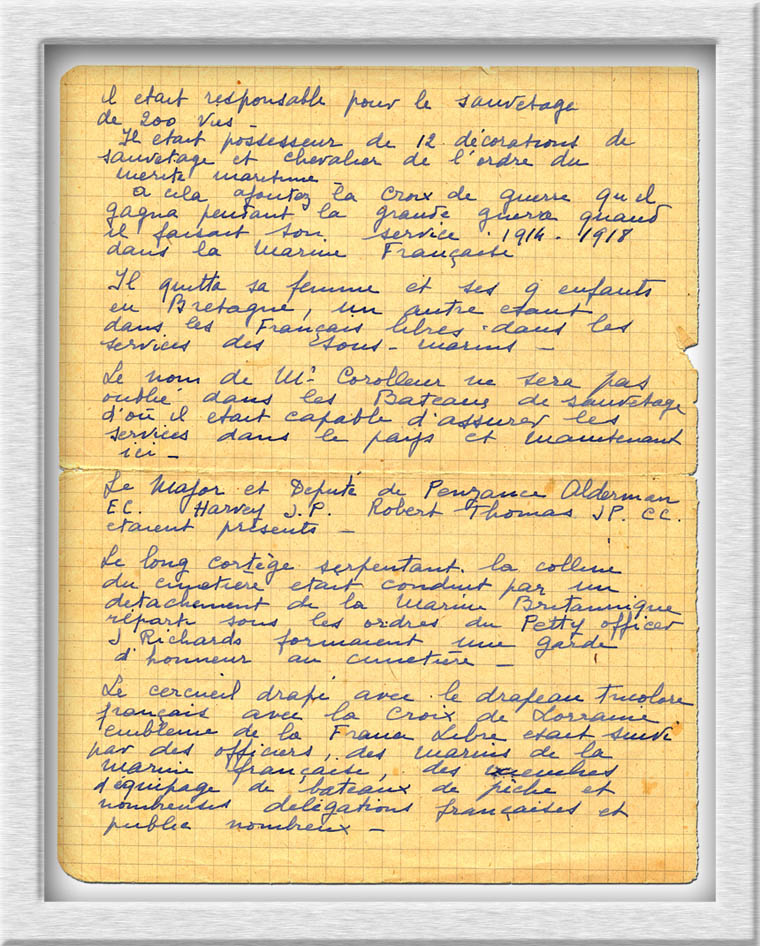 il etait responsable pour le sauvetage
de 200 vies -
Il etait possesseur de 12 décorations de
sauvetage et chevalier de l'ordre du
merite maritime
a cela ajoutez la croix de guerre qu'il
gagna pendant la grande guerre quand
il faisait son service . 1914 . 1918
dans la Marine Française
Il quitta sa femme et ses 9 enfants
en Bretagne, un autre etant
dans les Français libres dans les
services des Sous-marins -
Le nom de Mr Corolleur ne sera pas
oublié dans les Bateaux de sauvetage
d'où il etait capable d'assurer les
services dans le pays et maintenant
ici -
Le Major et Deputé de Penzance Alderman
EC. Harvey J.P. Robert Thomas JP. CC.
etaient présents -
Le long cortège serpentant la colline
du cimetière etait conduit par un
detachement de la Marine Britannique
réparti sous les ordres du Petty officer
J Richards formaient une garde
d'honneur au cimetière -
Le cercueil drapé avec le drapeau tricolore
français avec la Croix de Lorraine
emblème de la France Libre etait suivi
par des officiers, des marins de la
marine française, des membres
d'équipage de bateaux de pêche et
nombreuses délégations françaises et
public nombreux -